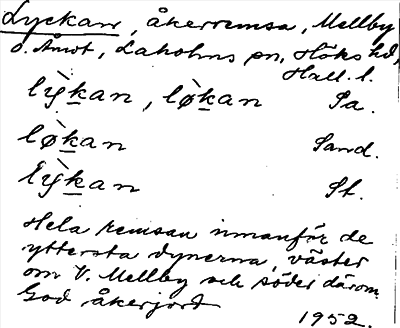 Lyckan, åkerremsa, Mellby
o. Åmot, Laholms pn, Höks hd,
Hall. l.
lỳkan, lø̀kan Sa.
lø̀kan Sand.
lỳkan St.
Hela remsan innanför de
yttersta dynerna, väster
om V. Mellby och söder därom.
God åkerjord
1952.